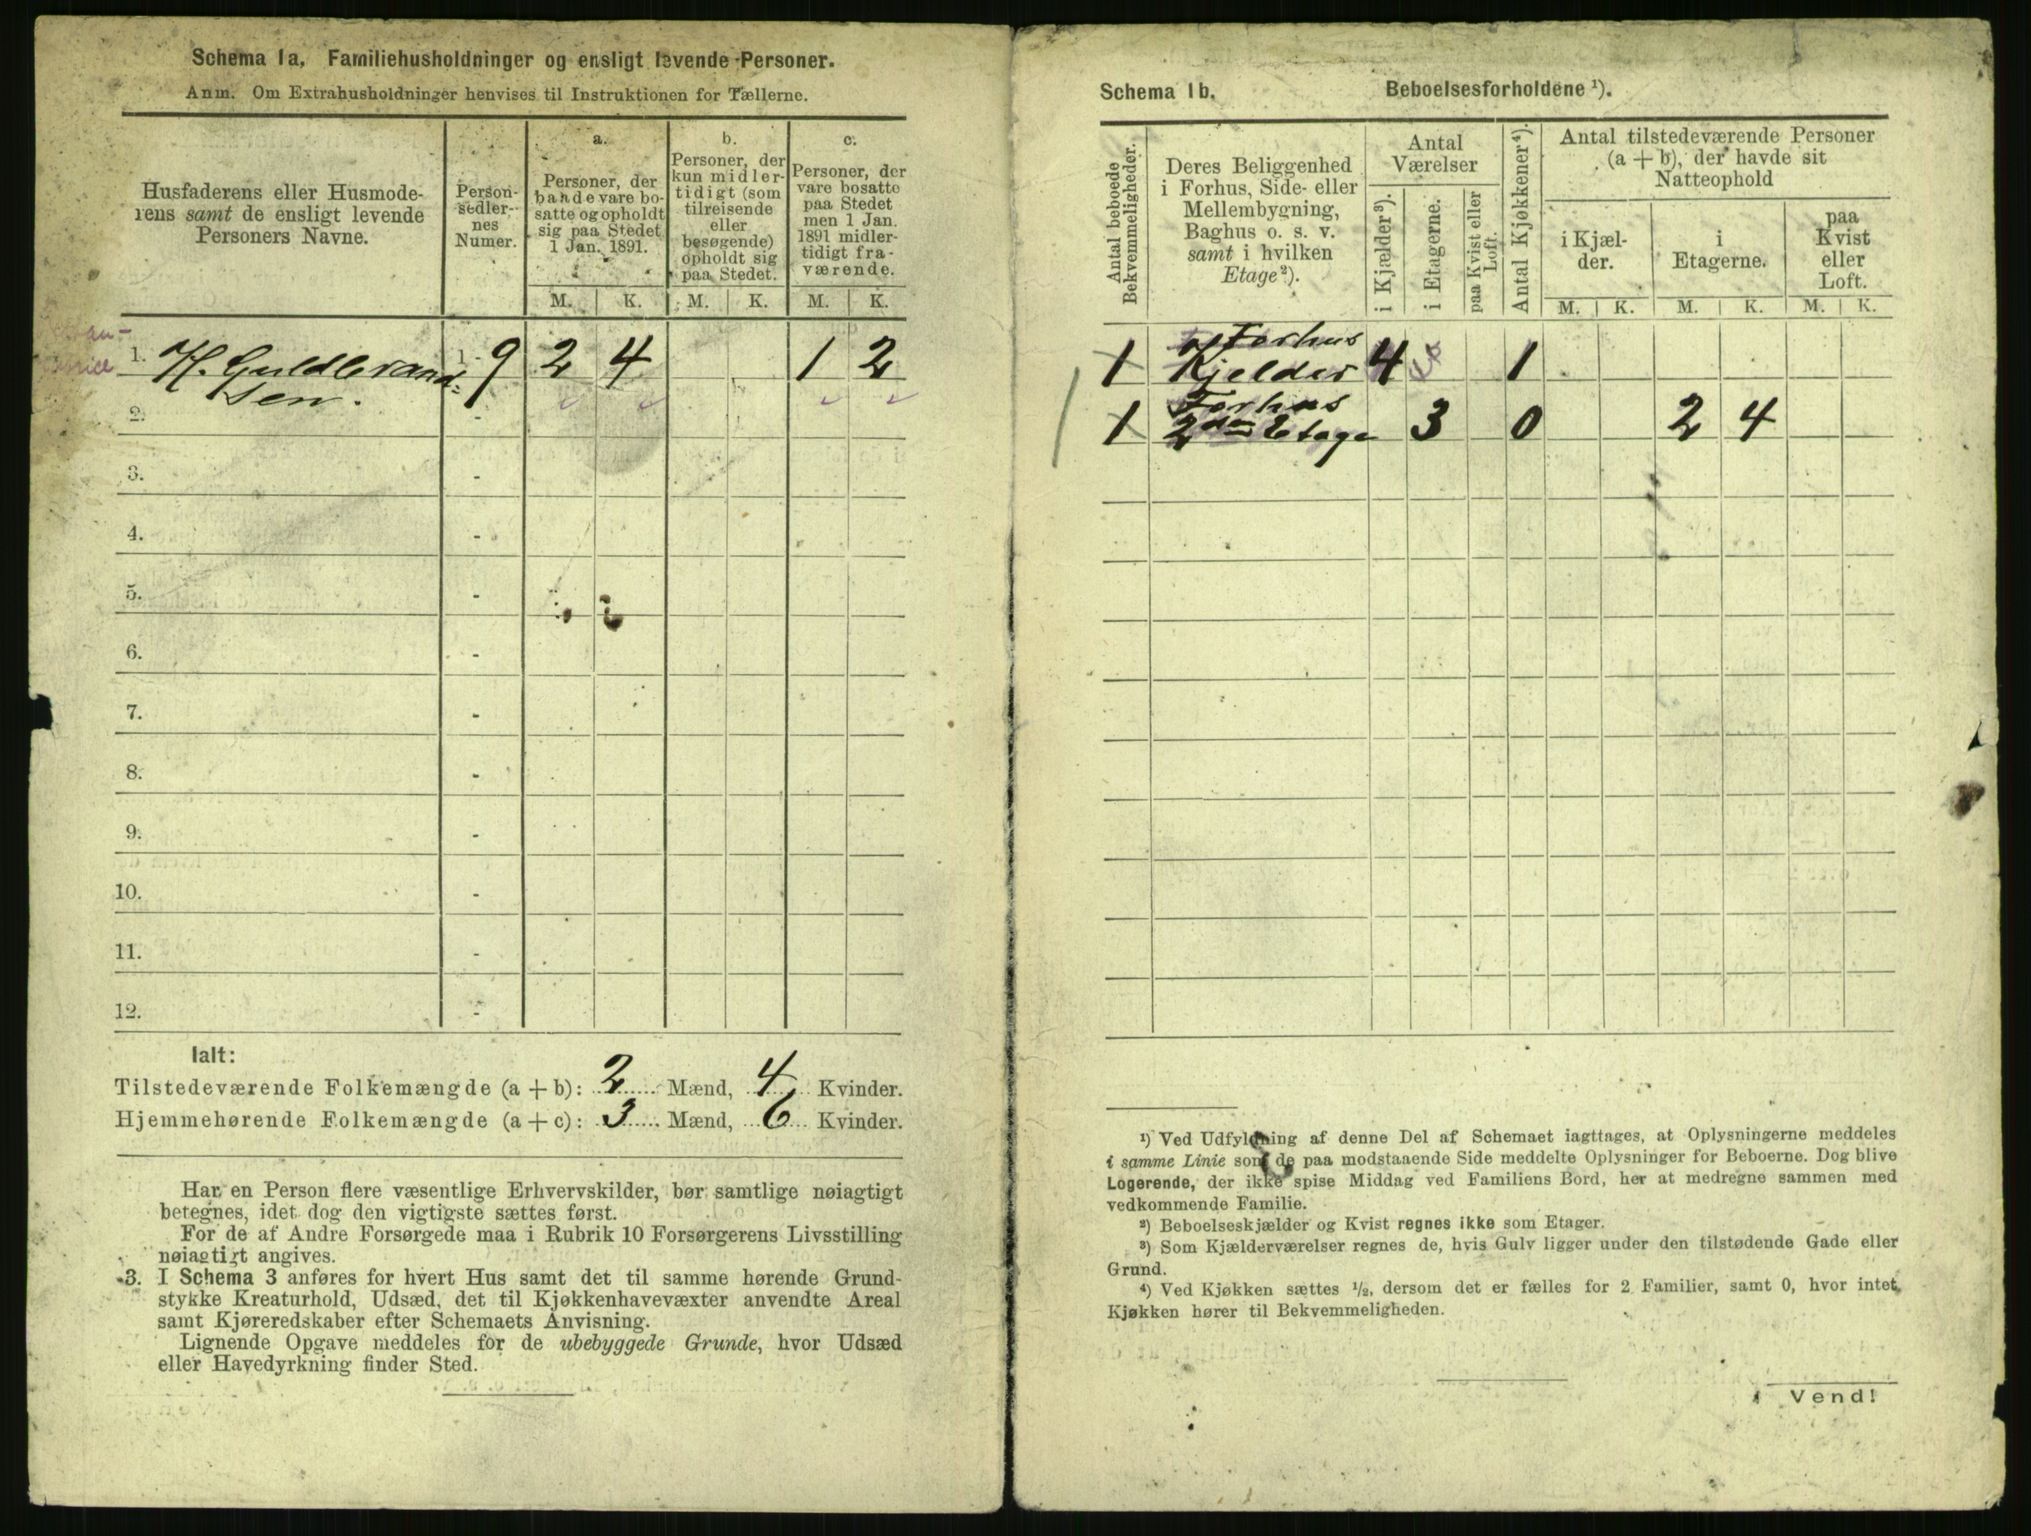 Schema 1a. Familiehusholdninger og ensligt levende Personer.
Anm. Om Extrahusholdninger henvises til Instruktionen for Tællerne.
Husfaderens eller Husmode-
rens samt de ensligt levende
Personers Navne.
Person-
sedler-
nes
Numer.
a.
Personer, der
baade vare bo-
satte og opholdt
sig paa Stedet
1 Jan. 1891.
b.
Personer, der
kun midler-
tidigt (som
tilreisende
eller
besøgende)
opholdt sig
paa Stedet.
c.
Personer, der
vare bosatte
paa Stedet
men 1 Jan.
1891 midler-
tidigt fra-
værende.
M. K. M. K. M. K.
1. H. Guldbrand= 1- 9 2 4 1 2
sen.
2. -
3. -
4. -
5. -
6. -
7. -
8. -
9. -
10. -
11. -
12. -
Ialt:
Tilstedeværende Folkemængde (a + b): 2 Mænd, 4 Kvinder.
Hjemmehørende Folkemængde (a + c): 3 Mænd, 6 Kvinder.
Har en Person flere væsentlige Erhvervskilder, bør samtlige nøiagtigt
betegnes, idet dog den vigtigste sættes først.
For de af Andre Forsørgede maa i Rubrik 10 Forsørgerens Livsstilling
nøiagtigt angives.
3. I Schema 3 anføres for hvert Hus samt det til samme hørende Grund-
stykke Kreaturhold, Udsæd, det til Kjøkkenhavevæxter anvendte Areal
samt Kjøreredskaber efter Schemaets Anvisning.
Lignende Opgave meddeles for de ubebyggede Grunde, hvor Udsæd
eller Havedyrkning finder Sted.
Schema 1b. Beboelsesforholdene ¹).
Antal beboede
Bekvemmeligheder.
Deres Beliggenhed
i Forhus, Side- eller
Mellembygning,
Baghus o. s. v.
samt i hvilken
Etage ²).
Antal
Værelser
i Kjælder ³).
i Etagerne.
paa Kvist eller
Loft.
Antal Kjøkkener ⁴).
Antal tilstedeværende Personer
(a + b), der havde sit
Natteophold
i Kjæl-
der.
i
Etagerne.
paa
Kvist
eller
Loft.
M. K. M. K. M. K.
Forhus
1 Kjelder 4 1
Forhus
1 2den Etage 3 0 2 4
¹) Ved Udfyldning af denne Del af Schemaet iagttages, at Oplysningerne meddeles
i samme Linie som de paa modstaaende Side meddelte Oplysninger for Beboerne. Dog blive
Logerende, der ikke spise Middag ved Familiens Bord, her at medregne sammen med
vedkommende Familie.
²) Beboelseskjælder og Kvist regnes ikke som Etager.
³) Som Kjælderværelser regnes de, hvis Gulv ligger under den tilstødende Gade eller
Grund.
⁴) Ved Kjøkken sættes ½, dersom det er fælles for 2 Familier, samt 0, hvor intet
Kjøkken hører til Bekvemmeligheden.
Vend!